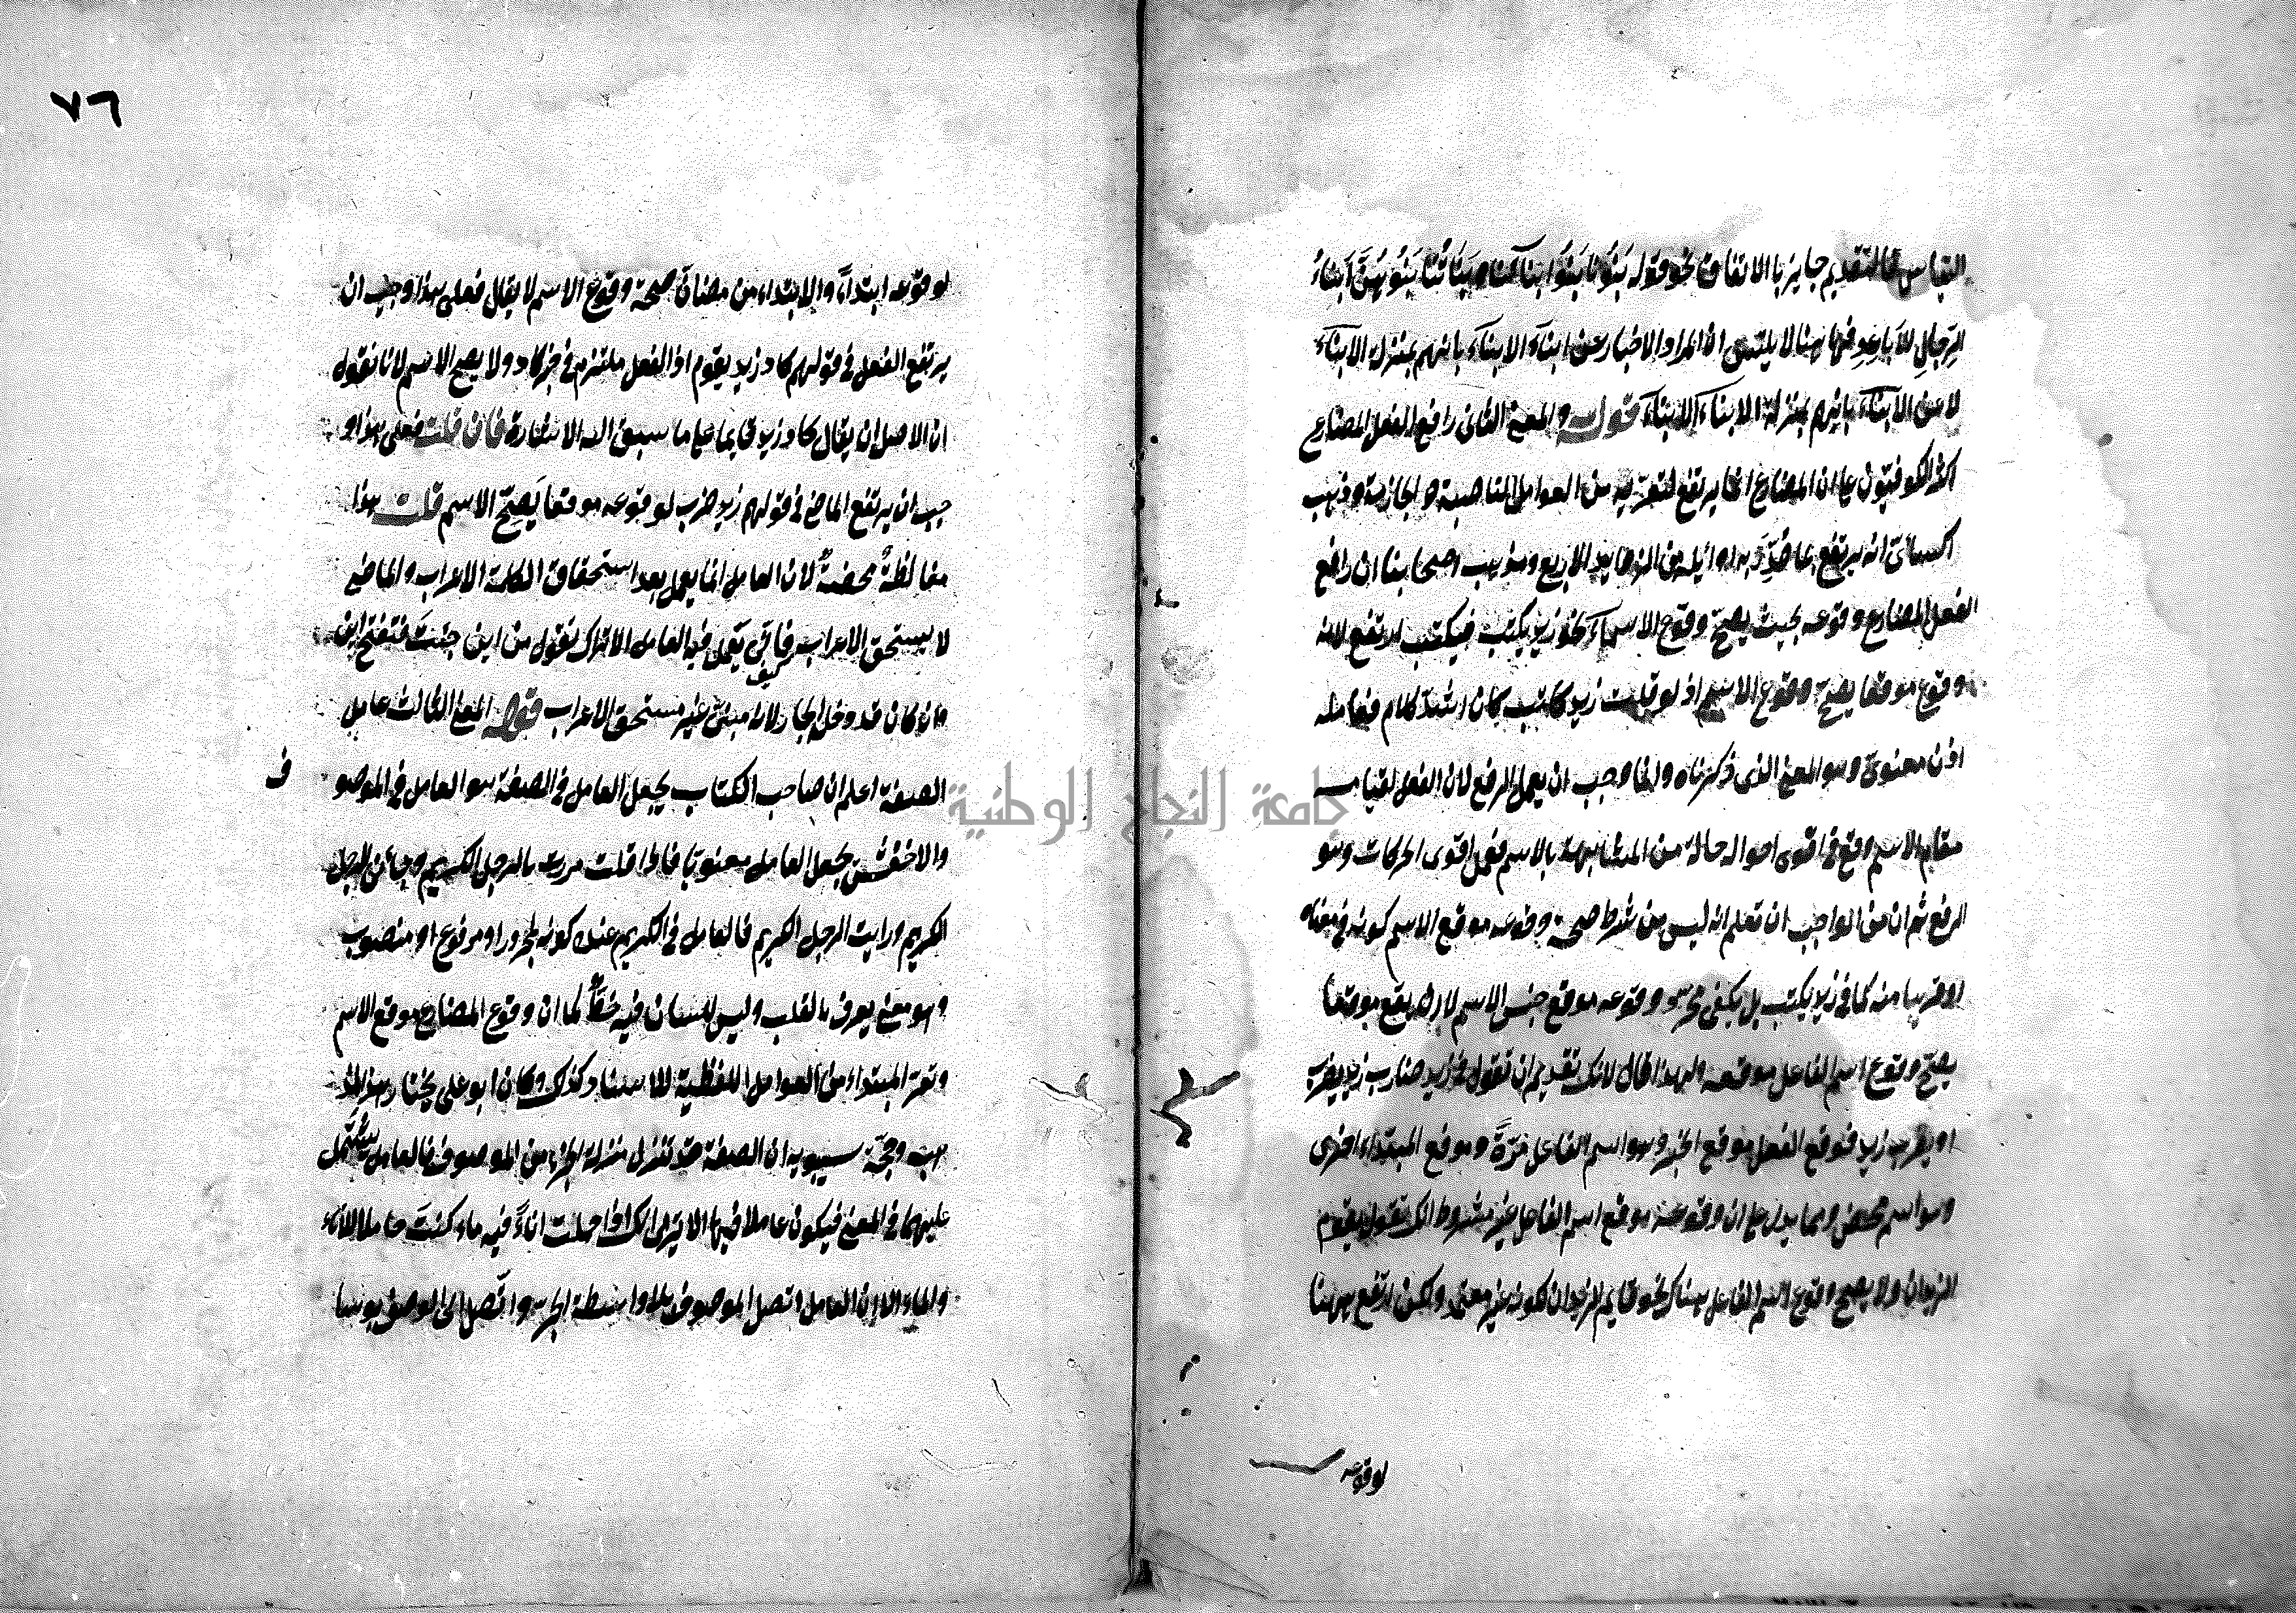 القياس فالتقديم جايز بالاتفاق نحو قوله بَنُونا بَنُوا ابنآئنا وبَنَاتُنا بَنُوهُنَّ اَبناءُ
الرِّجالِ الاَباعِدِ فههنا لا يلتبس اذ المراد الاخبار عن ابنآء الابنآء بانهم بمنزلة الابنآء
لا عن الابنآء بانهم بمنزلة الابناء الابنآء قوله والمعنى الثانى رافع الفعل المضارع
اكثر الكوفيّون على ان المضارع انما يرتفع لتعرّيه من العوامل الناصبة والجازمة وذهب
الكسائىّ انه يرتفع بما صُدِّرَ به اوائله من الزوايد الاربع ومذهب اصحابنا ان رافع
الفعل المضارع وقوعه بحيث يصحّ وقوع الاسماء نحو زيدٌ يكتب فيكتب ارتفع لانه
وقوع موقعا يصحّ وقوع الاسم اذ لو قلت زيد كاتب كان اشدّ كلام فعامله
اذن معنوىّ وهو المعنى الذى ذكرناه وانما وجب ان يعمل الرفع لان الفعل لقيامه
مقام الاسم وقع فى اقوى احواله حالة من المشابهة بالاسم فعمل اقوى الحركات وهو
الرفع ثم ان من الواجب ان تعلم انه ليس من شرط صحة وقوعه موقع الاسم كونه فى معناه
او قريبا منه كما فى زيد يكتب بل يكفى مجرد وقوعه موقع جنس الاسم لانه يقع موقعا
يصحّ وقوع اسم الفاعل موقعه ولهذا قال لانك تقدير ان تقول فى زيد ضارب زيد يضرب
او يضرب زيد فوقع الفعل موقع الخبر وهو اسم الفاعل مرّةً وموقع المبتداء اخرى
وهو اسم محض ومما يدل على ان وقوعه موقع اسم الفاعل غير مشروط انك تقول يقوم
الزيدان ولا يصح وقوع اسم الفاعل هناك نحو قايم الزيدان لكونه غير معتمد ولكن ارتفع ههنا
لوقوعه
٧٦
لوقوعه ابتداءً والابتداء من مضانّ صحة وقوع الاسم لا يقال فعلى هذا وجب ان
يرتفع الفعل فى قولهم كاد زيد يقوم اذ الفعل ملتزم فى خبر كاد ولا يصح الاسم لانا نقول
ان الاصل ان يقال كاد زيد قايما على ما سبق اليه الاشارة فان قلت فعلى هذا و
جب ان يرتفع الماضى فى قولهم زيد ضرب لوقوعه موقعا يَصِحّ الاسم قلت هذا
مغالطةٌ محضةٌ لان العامل انما يعمل بعد استحقاق الكلمة الاعراب والماضى
لا يستحق الاعراب فانّى يعمل فيه العامل الا تراك تقول من اين جئتَ فتفتح اين
كيف
وان كان قد دخل الجار لانه مبنىّ غير مستحق الاعراب قوله المعنى الثالث عامل
الصفة اعلم ان صاحب الكتاب يجعل العامل فى الصفة هو العامل فى الموصو
ف
والاخفش يجعل العامل معنويّا فاذا قلت مررت بالرجل الكريم وجائنى الرجل
الكريم ورايت الرجل الكريم فالعامل فى الكريم عنده كونه مجرورا ومرفوع او منصوب
وهو معنى يعرف بالقلب وليس للسان فيه حظٌّ كما ان وقوع المضارع موقع الاسم
وتعرّ المبتداء من العوامل اللفظية للاسناد كذلك وكان ابو على يختار هذا المذ
هب وحجّة سيبويه ان الصفة قد تنزل منزلة الجزء من الموصوف فالعامل يشتمل
عليهما فى المعنى فيكون عاملا فيهما الا ترى انك اذا حملت اناءً فيه ماء كنتَ حاملا للاناء
والماء الا ان العامل اتصل الموصوف بلا واسطة الجر واتّصل الى الوصف بوسا